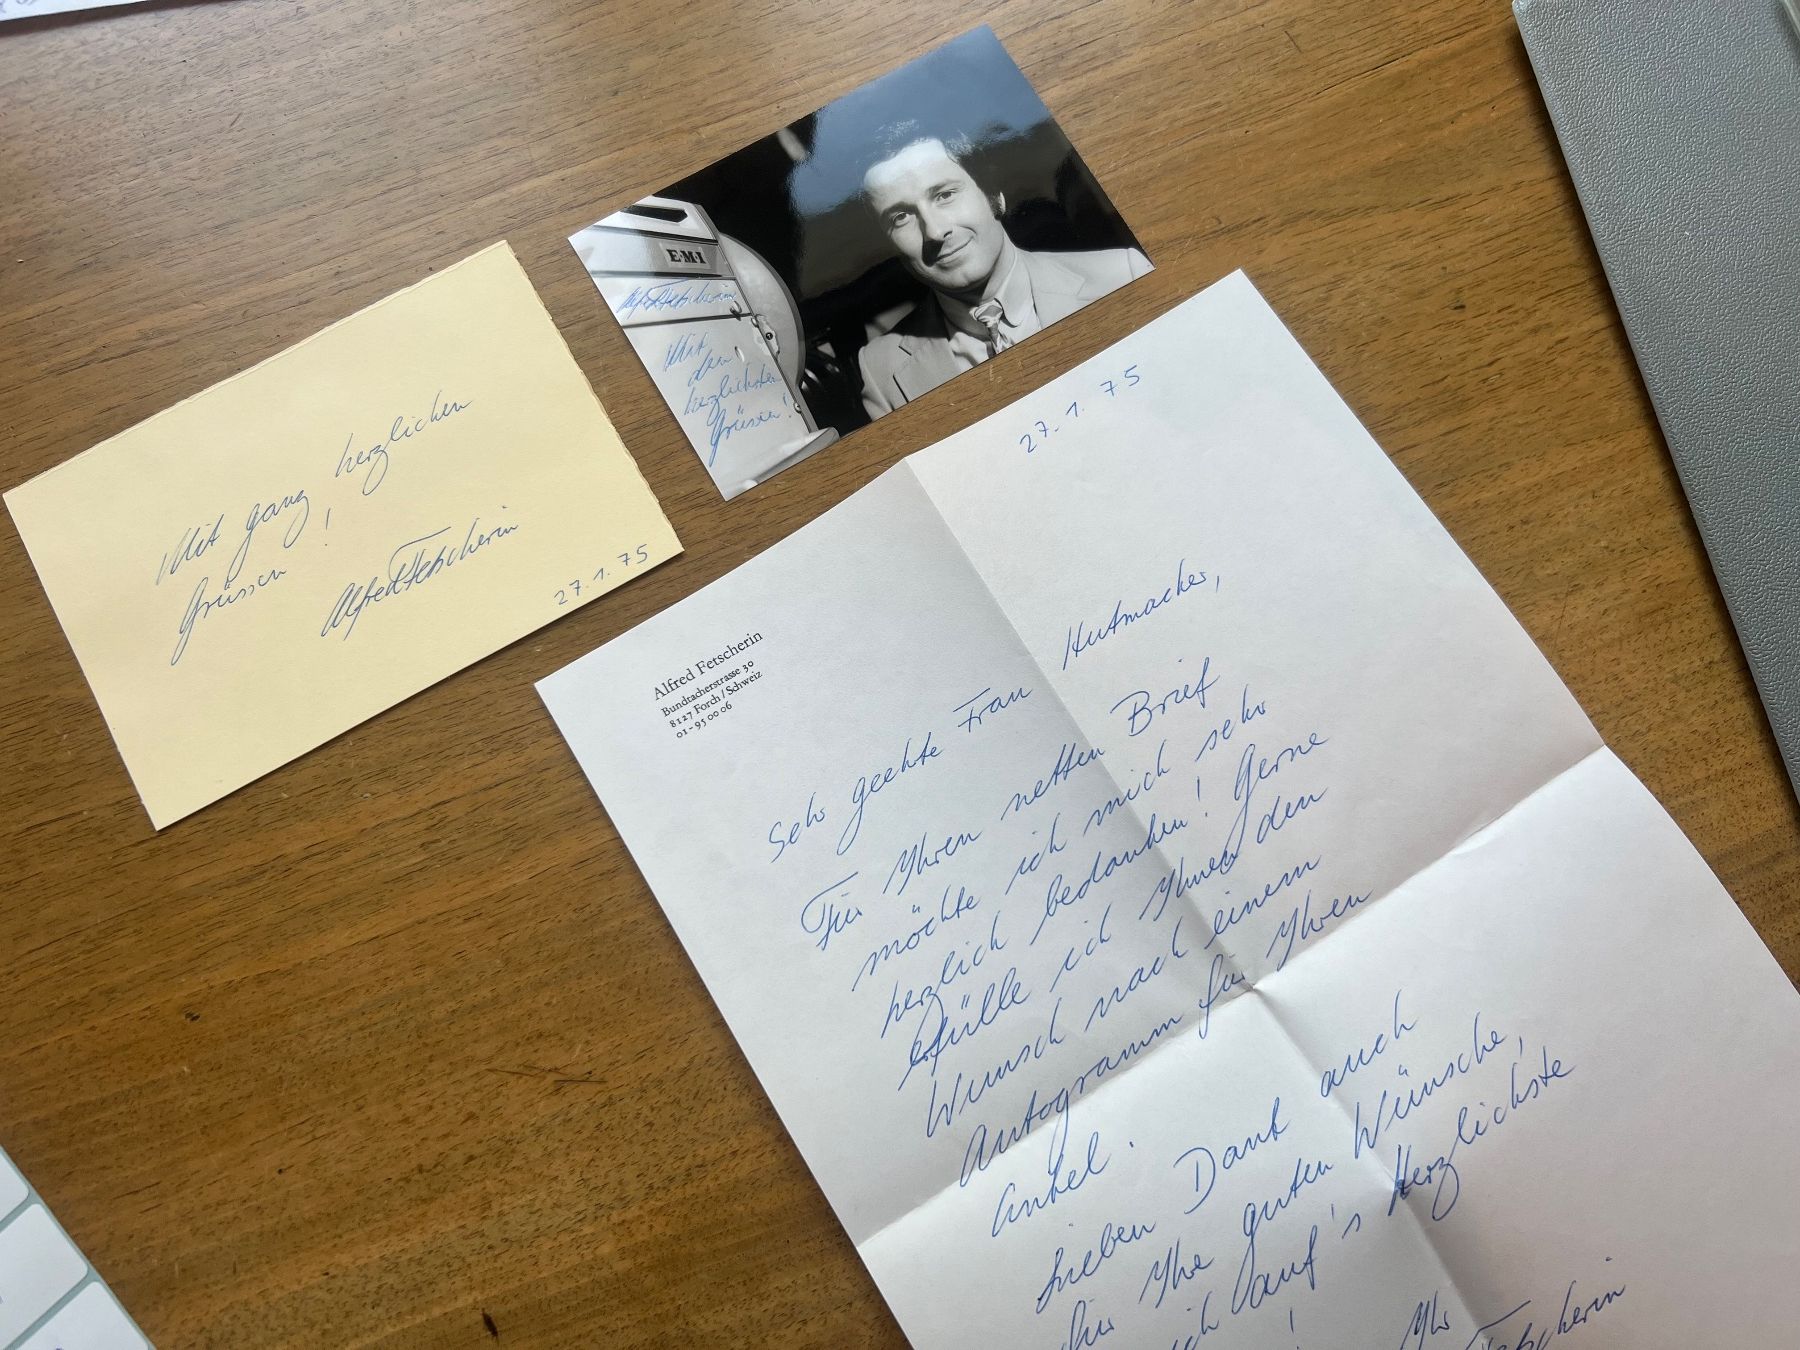 Mit ganz herzlichen
Grüssen!
Alfred Fetscherin
27.1.75
E·M·I
Alfred Fetscherin
Mit
den
herzlichsten
Grüssen!
27.1.75
Alfred Fetscherin
Bundtacherstrasse 30
8127 Forch / Schweiz
01 - 95 00 06
Sehr geehrte Frau Hutmacher,
Für Ihren netten Brief
möchte ich mich sehr
herzlich bedanken! Gerne
erfülle ich Ihnen den
Wunsch nach einem
Autogramm für Ihren
Enkel.
Lieben Dank auch
für Ihre guten Wünsche,
ich auf's Herzlichste
!
Ihr
Fetscherin